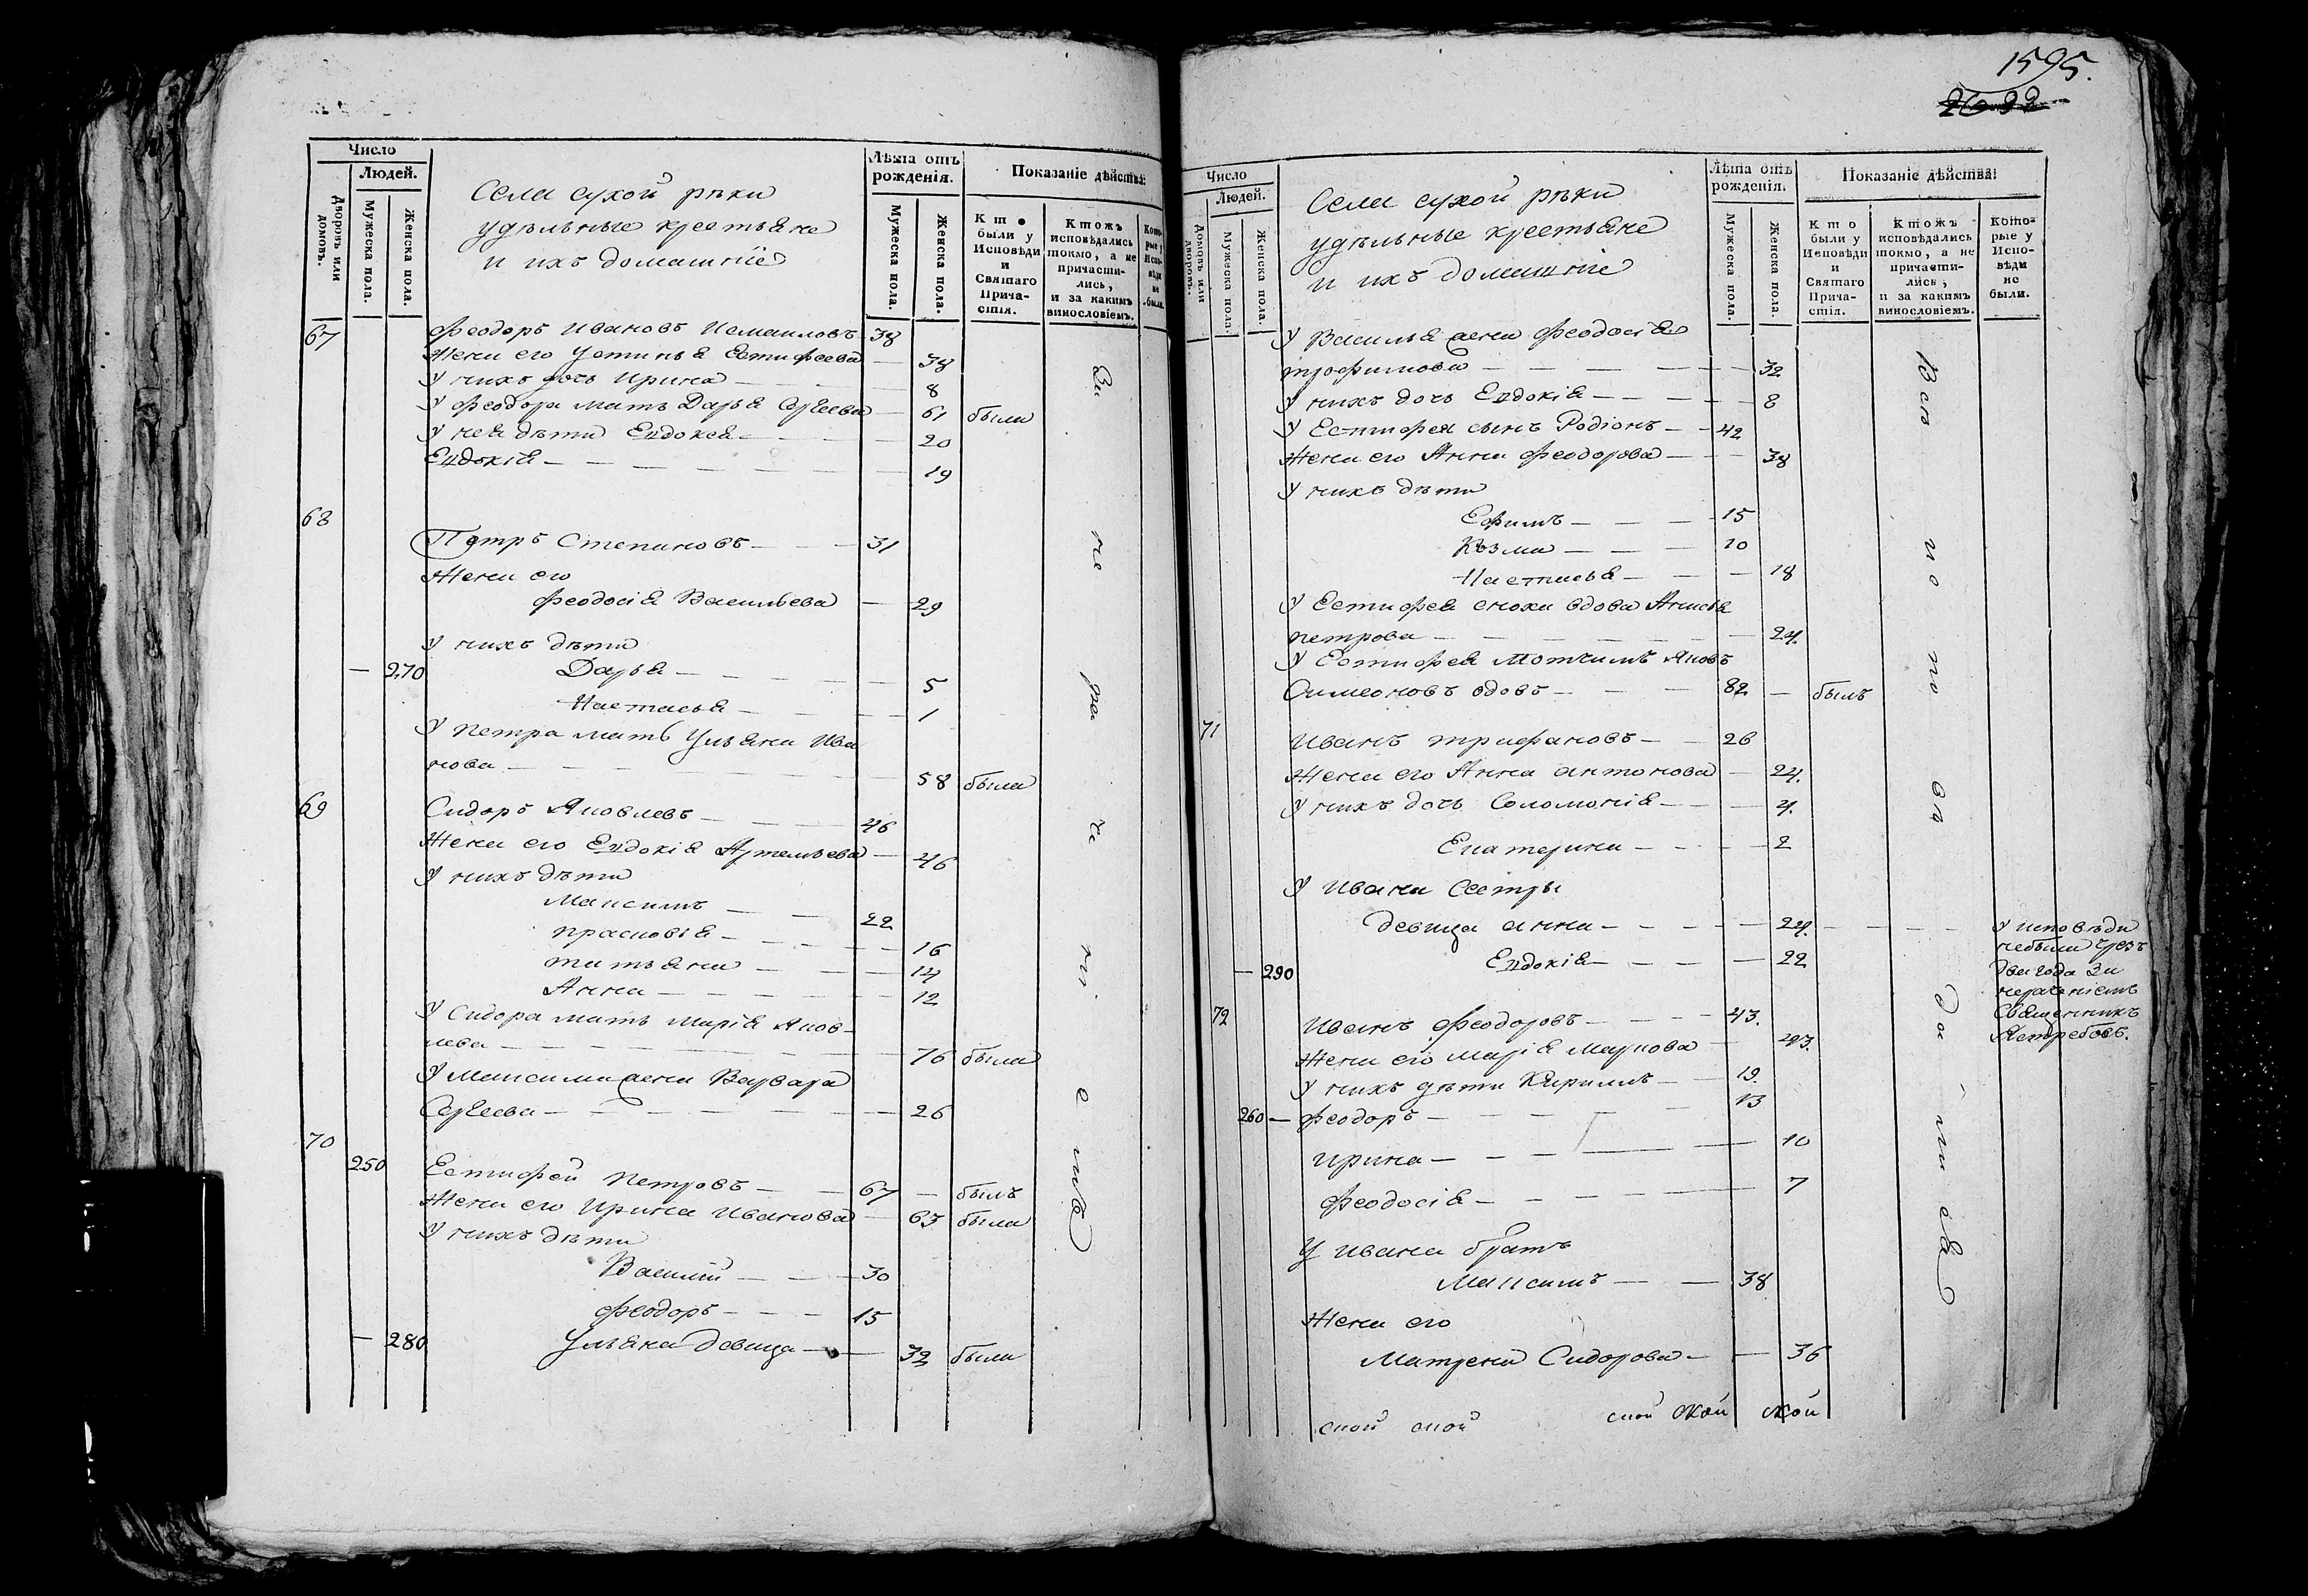 Число
Людей.
Дворовъ или домовъ.
Мужеска пола.
Женска пола.
Села сухой рѣки
удѣльные крестьяне
и ихъ домашніе
Лѣта отъ рожденія.
Мужеска пола.
Женска пола.
Показаніе дѣйства:
Кто были у Исповѣди и Святаго Причастія.
Ктожъ исповѣдались токмо, а не причастились, и за какимъ винословіемъ.
Которые у Исповѣди не были.
67 Феодоръ Ивановъ Исмаиловъ 38
Жена его Устинья Естифеева — 38
У нихъ дочь Ирина — 8
У Феодора мать Дарья Сергеева — 61 была
У нея дѣти Евдокея — 20
Евдокія — 19
68
Петръ Степановъ — 31
Жена его
Феодосія Васильева — 29
У нихъ дѣти
— 270 Дарья — 5
Настасья — 1
У Петра мать Ульяна Ива
нова — 58 была
69 Сидоръ Яковлевъ — 46
Жена его Евдокія Артемьева — 46
У нихъ дѣти
Максимъ — 22
Прасковья — 16
Татьяна — 14
Анна — 12
У Сидора мать Марія Яков-
лева — 76 была
У Максима жена Варвара
Сергеева — 26
70
250 Естифей Петровъ — 67 — былъ
Жена его Ирина Иванова — 63 была
У нихъ дѣти
Василій — 30
Феодоръ — 15
— 280 Ульяна девица — 32 была
За не ра че ні е мъ
1595.
2632
Число
Людей.
Домовъ или дворовъ.
Мужеска пола.
Женска пола.
Села сухой рѣки
удѣльные крестьяне
и ихъ домашніе
Лѣта отъ рожденія.
Мужеска пола.
Женска пола.
Показаніе дѣйства:
Кто были у Исповѣди и Святаго Причастія.
Ктожъ исповѣдались токмо, а не причастились, и за какимъ винословіемъ.
Которые у Исповѣди не были.
У Василья жена Феодосія
Трофимова — 32
У нихъ дочь Евдокія — 8
У Естифея сынъ Родіонъ — 42
Жена его Анна Феодорова — 38
У нихъ дѣти
Ефимъ — 15
Козма — 10
Настасья — 18
У Естифея сноха вдова Анисья
Петрова — 24.
У Естифея Мотчимъ Яковъ
Симеоновъ вдовъ — 82 — былъ
71 Иванъ Трифановъ — 26
Жена его Анна Антонова — 24.
У нихъ дочь Соломонія — 4.
Екатерина — 2
У Ивана Сестры
девица Анна — 24. — У исповѣди
небыли чрезъ
— 290 Евдокія — 22 два года За
нераченіемъ
Священникъ
Ястребовъ.
72 Иванъ Феодоровъ — 43.
Жена его Марія Маркова — 43.
У нихъ дѣти Кирилъ — 19.
260 — Феодоръ — 13
Ирина — 10
Феодосія — 7
У Ивана братъ
Максимъ — 38
Жена его
Матрена Сидорова — 36
ской ской ской ской ской